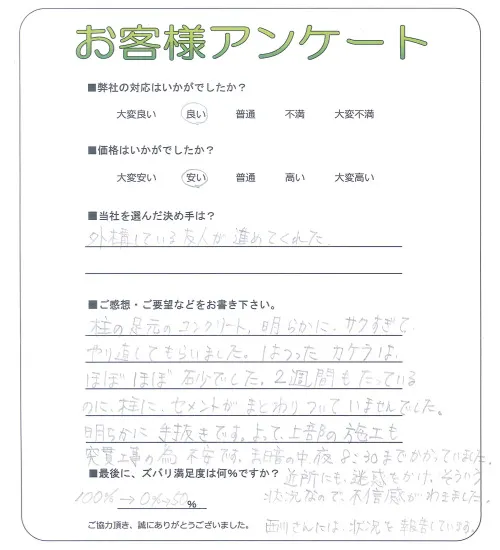 お客様アンケート
■弊社の対応はいかがでしたか？
大変良い 良い 普通 不満 大変不満
■価格はいかがでしたか？
大変安い 安い 普通 高い 大変高い
■当社を選んだ決め手は？
外構している友人が進めてくれた
■ご感想・ご要望などをお書き下さい。
柱の足元のコンクリート、明らかに、サクすぎて、
やり直してもらいました。はつったカケラは、
ほぼほぼ砂でした。2週間もたっている
のに、柱に、セメントがまとわりついていませんでした。
明らかに手抜きです。よって上部の施工も
突貫工事の為不安です。真暗の中、夜8:30までかかっていました。
■最後に、ズバリ満足度は何%ですか？
近所にも、迷惑をかけ、そういう
100%→0%→50%
状況なので、不信感がわきました。
ご協力頂き、誠にありがとうございました。
西川さんには、状況を報告しています。